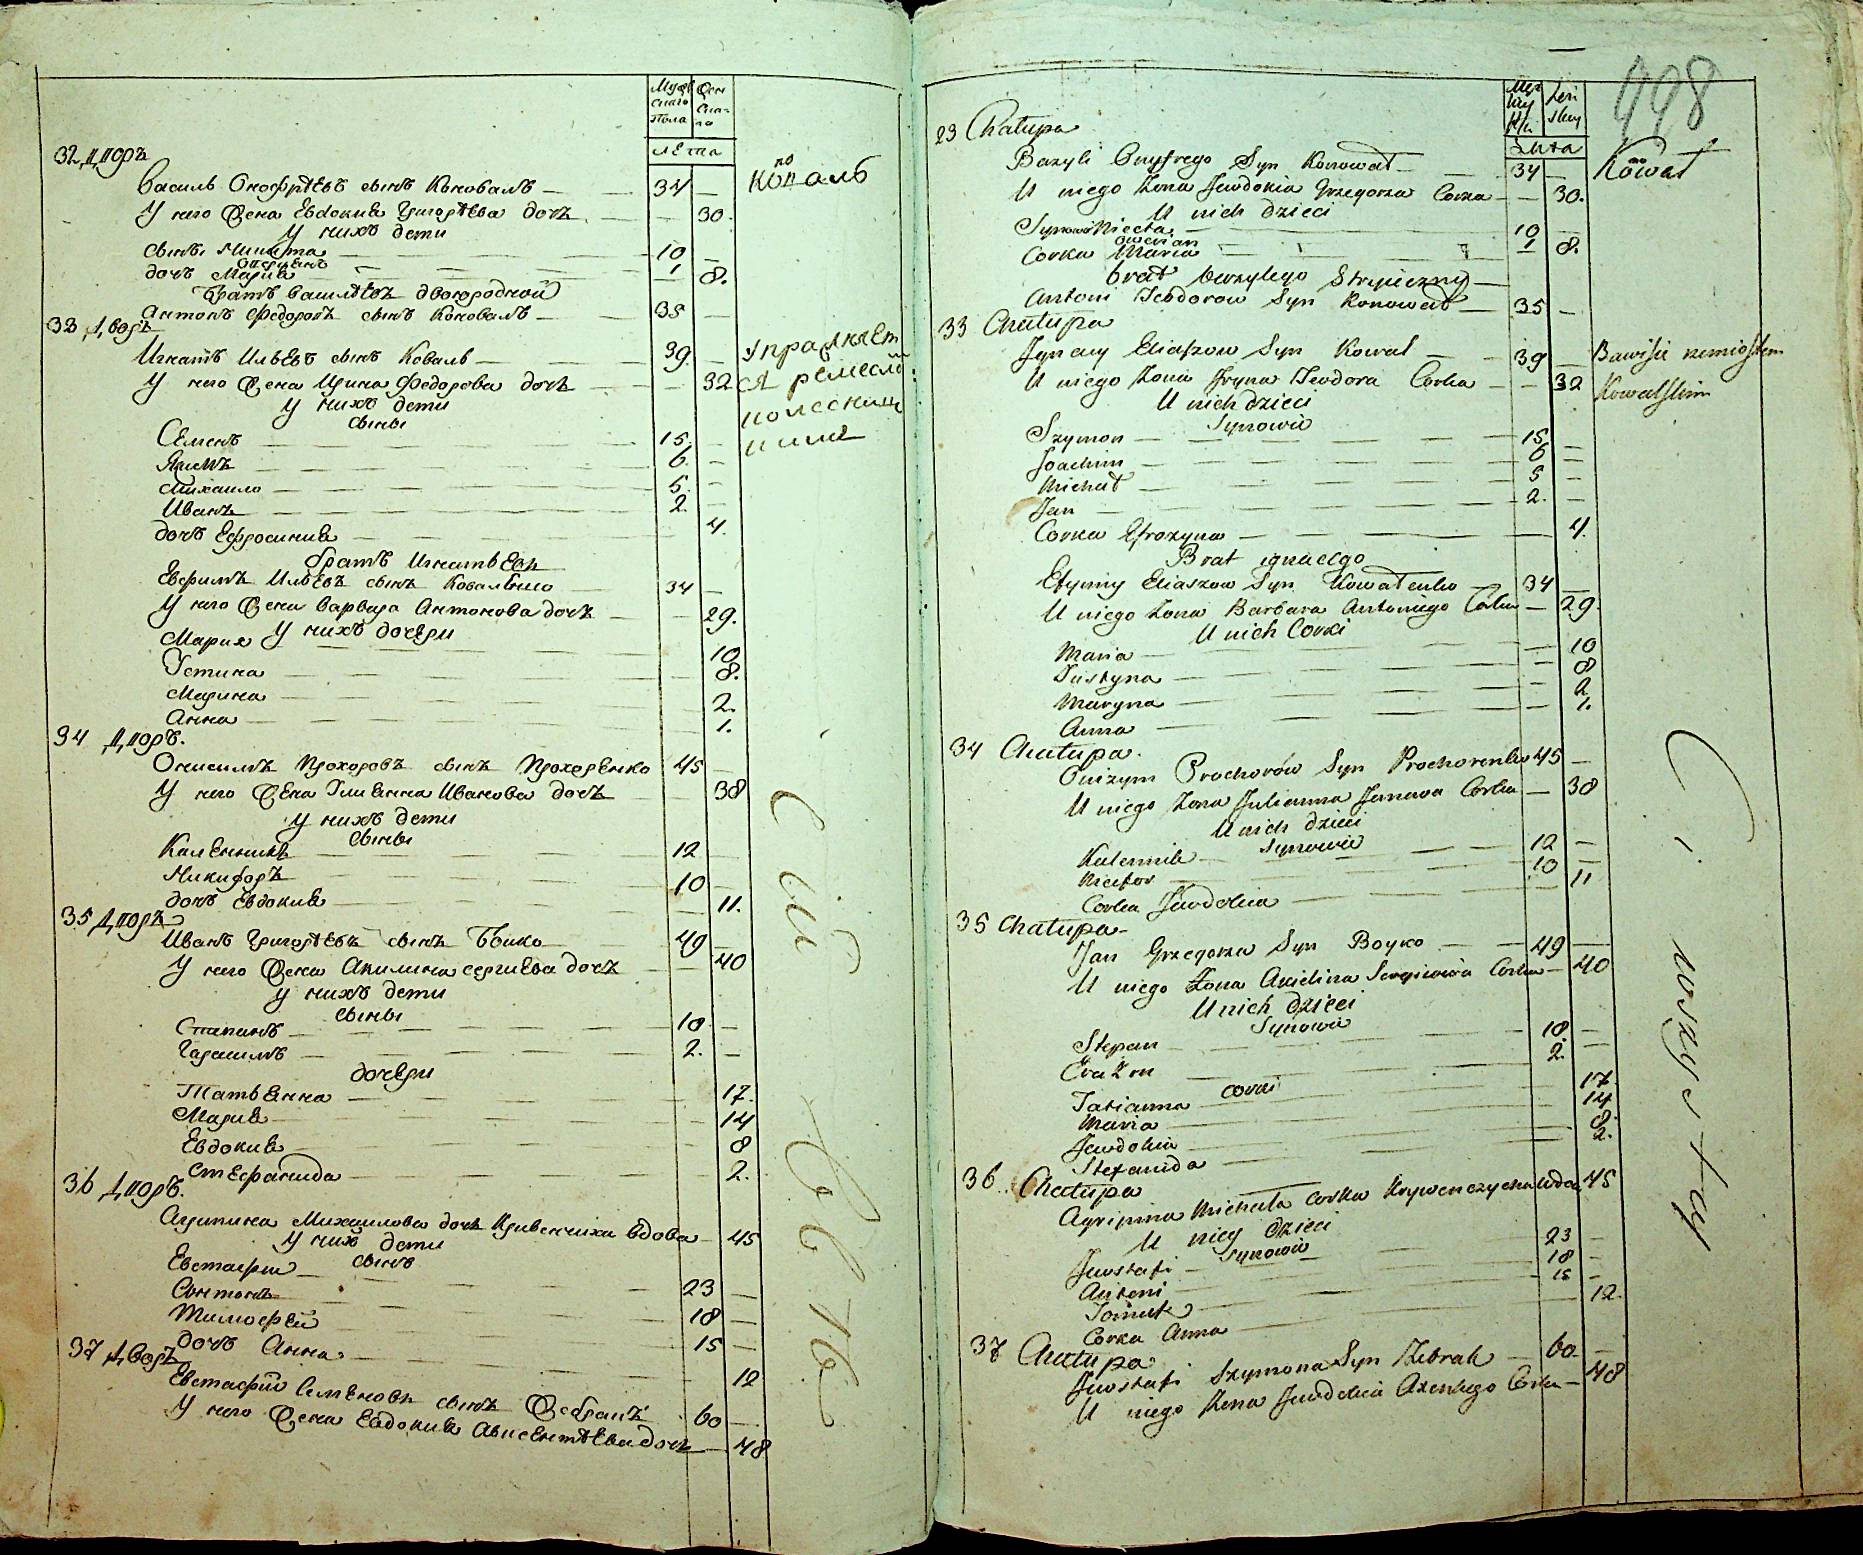 Мужескаго пола
Женска-го
лета
32 Дворъ
Василь Онофрѣевъ сынъ Коновалъ — 34 —
коноваль
У него жена Евдокия Григорѣева дочь — 30.
У нихъ дети
сынъ Микита — 10 —
дочь Мария — 8.
Братъ василѣевъ двоюродной
Антонъ Федоровъ сынъ Коновалъ — 35 —
33 Дворъ
Игнатъ Ильевъ сынъ Коваль — 39 —
У него жена Ирина Федорова дочь — 32
У нихъ дети
сыны
Семенъ — 15. —
Якимъ — 6. —
Михаило — 5. —
Иванъ — 2. —
дочь Ефросиния — 4.
братъ Игнатьевъ
Евфимъ Ильевъ сынъ Коваленко — 34 —
У него жена Варвара Антонова дочь — 29.
У нихъ дочери
Мария — 10
Устина — 8.
Марина — 2.
Анна — 1.
34 Дворъ.
Онисимъ Прохоровъ сынъ Прохоренко 45 —
У него жена Улиянна Иванова дочь — 38
У нихъ дети
сыны
Каленникъ — 12
Никифоръ — 10 —
дочь Евдокия — 11.
35 Дворъ
Иванъ Григорѣевъ сынъ Боико — 49 —
У него жена Акилина сергиева дочь — 40
У нихъ дети
сыны
Степанъ — 10 —
Гарасимъ — 2. —
дочери
Татьянна — 17.
Мария — 14
Евдокия — 8
Стефанида — 2.
36 Дворъ.
Агрипина Михаилова дочь Кривенчиха вдова — 45
У нихъ дети
сынъ
Евстафии — 23 —
Антонъ — 18 —
Тимофей — 15 —
дочь Анна — 12
37 Дворъ
Евстафий Семеновъ сынъ Жебракъ 60 —
У него жена Евдокия Авксентѣева дочь — 48
498
Męz kiy płci
Żeń skiy
Lata
23 Chałupa
Bazyli Onyfrego Syn Konował — 34 —
Kował
U niego Żona Jewdokia Grzegorza Corka — 30.
U nich dzieci
10 —
Corka Maria — 8.
brat bazylego Stryieczny —
Antoni Teodorow Syn Konował — 35 —
33 Chałupa
Jgnacy Eliaszow Syn Kowal — 39 —
Bawi się rzemiosłem
U niego Żona Jryna Teodora Corka — 32
Kowalskim
U nich dzieci
Synowie
Szymon — 15 —
Joachim — 6 —
Michał — 5 —
Jan — 2. —
Corka Efrozyna — 4.
Brat ignacego
Efymiy Eliaszow Syn Kowalenko — 34 —
U niego Żona Barbara Antoniego Corka — 29.
U nich Corki
Maria — 10
Justyna — 8
Maryna — 2
Anna — 1.
34 Chałupa.
Onizym Prochorów Syn Prochorenko 45 —
U niego Żona Julianna Janowa Corka — 38
U nich dzieci
Synowie
Kalennik — 12 —
Nicefor — 10 —
Corka Jewdokia — 11
35 Chałupa
Jan Grzegorza Syn Boyko — 49 —
U niego Żona Akielina Sergiewa Corka — 40
U nich dzieci
Synowie
Stepan — 10. —
2. —
corki
Tatianna — 17.
Maria — 14
Jewdokia — 8.
Stefanida — 2.
36. Chałupa
Agripina Michała corka Krywenczycha wdowa 45
U niey dzieci
Synowie
Jewstafi — 23 —
Antoni — 18 —
15 —
Corka Anna — 12.
37 Chałupa
Jewstafi Szymona Syn Żebrak — 60 —
U niego Żona Jewdokia Corka — 48